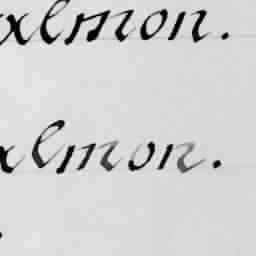 almon.
almon.